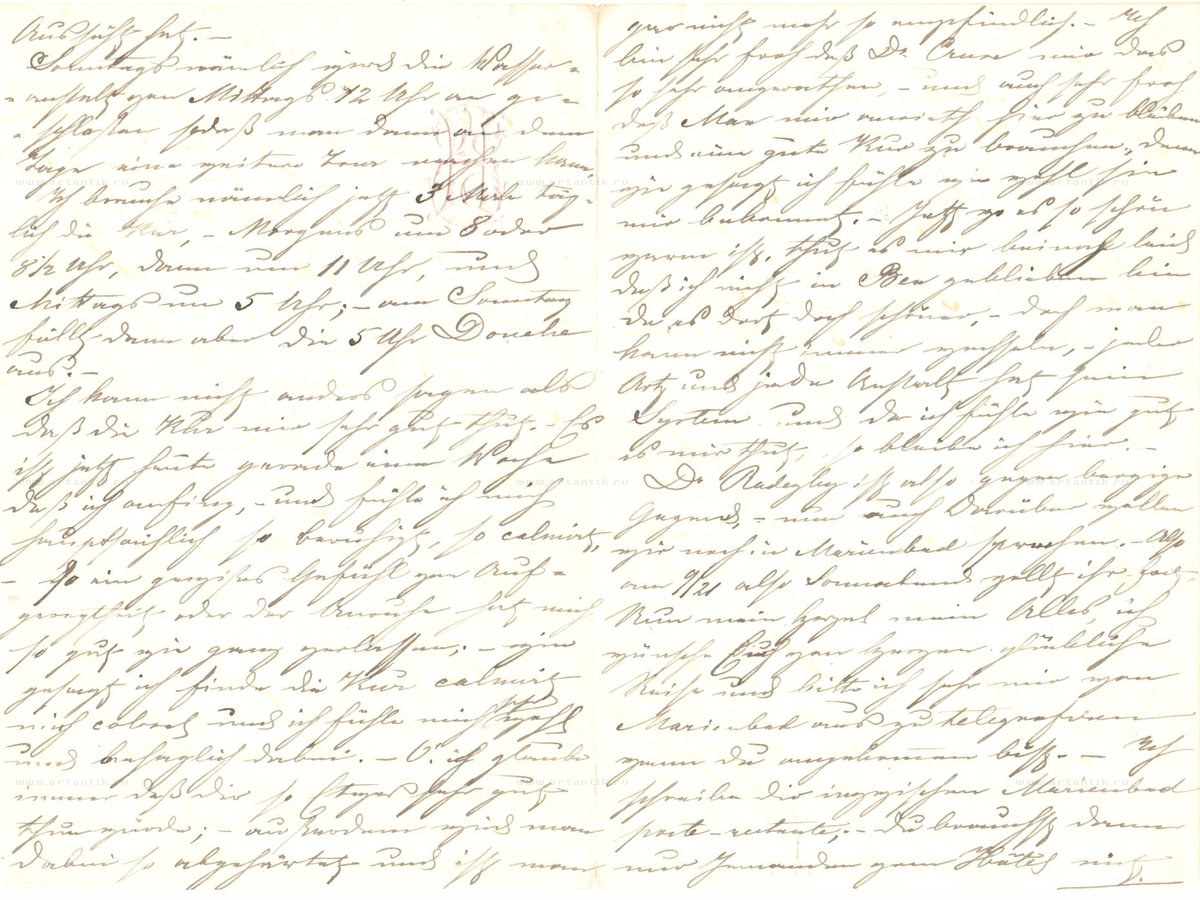 Aussicht hat. –
Sonntags nämlich wird die Wasser=
=anstalt von Mittags 12 Uhr an ge=
=schlossen sodaß man dann an dem
Tage eine weitere Tour machen kann,
Ich brauche nämlich jetzt 3 Mal täg=
lich die Kur, – Morgens um 8 oder
8½ Uhr, dann um 11 Uhr, und
Mittags um 5 Uhr; – am Sonntag
fällt dann aber die 5 Uhr Douche
aus. –
Ich kann nicht anders sagen als
daß die Kur mir sehr gut thut. – Es
ist jetzt heute gerade eine Woche
daß ich anfing, – und fühle ich mich
hauptsächlich so beruhigt, so calmirt,
– So ein gewisses Gefühl von Auf=
geregtheit oder der Unruhe hat mich
so gut wie ganz verlassen; – wie
gesagt ich finde die Kur calmirt
mich und ich fühle mich sehr wohl
und behaglich dabei. – O! ich glaube
immer daß dir so Etwas sehr gut
thun würde; – außerdem wird man
dabei so abgehärtet und ist man
gar nicht mehr so empfindlich. – Ich
bin sehr froh daß Dr. mir das
so sehr angerathen, – und auch sehr froh
daß Max mir anrieth hier zu bleiben
und eine gute Kur zu brauchen, denn
wie gesagt ich fühle wie wohl sie
mir bekommt. – Jetzt wo es so schön
warm ist, thut es mir beinah leid
daß ich nicht in geblieben bin
da es dort doch schöner, – doch man
kann nicht immer wechseln, – jeder
Arzt und jede Anstalt hat sein
System und da ich fühle wie gut
es mir thut, so bleibe ich hier. –
Dr. ist also gegen bergige
Gegend, – nun auch darüber wollen
wir noch in Marienbad sprechen. – Also
am 9/21 also Sonnabend wollt ihr fort. –
Nun mein Herz mein Alles, ich
wünsche Euch von Herzen glückliche
Reise und bitte ich sehr mir von
Marienbad aus zu telegrafiren
wann du angekommen bist. – Ich
schreibe dir inzwischen Marienbad
poste-restante; – du brauchst dann
nur Jemanden vom Hôtel